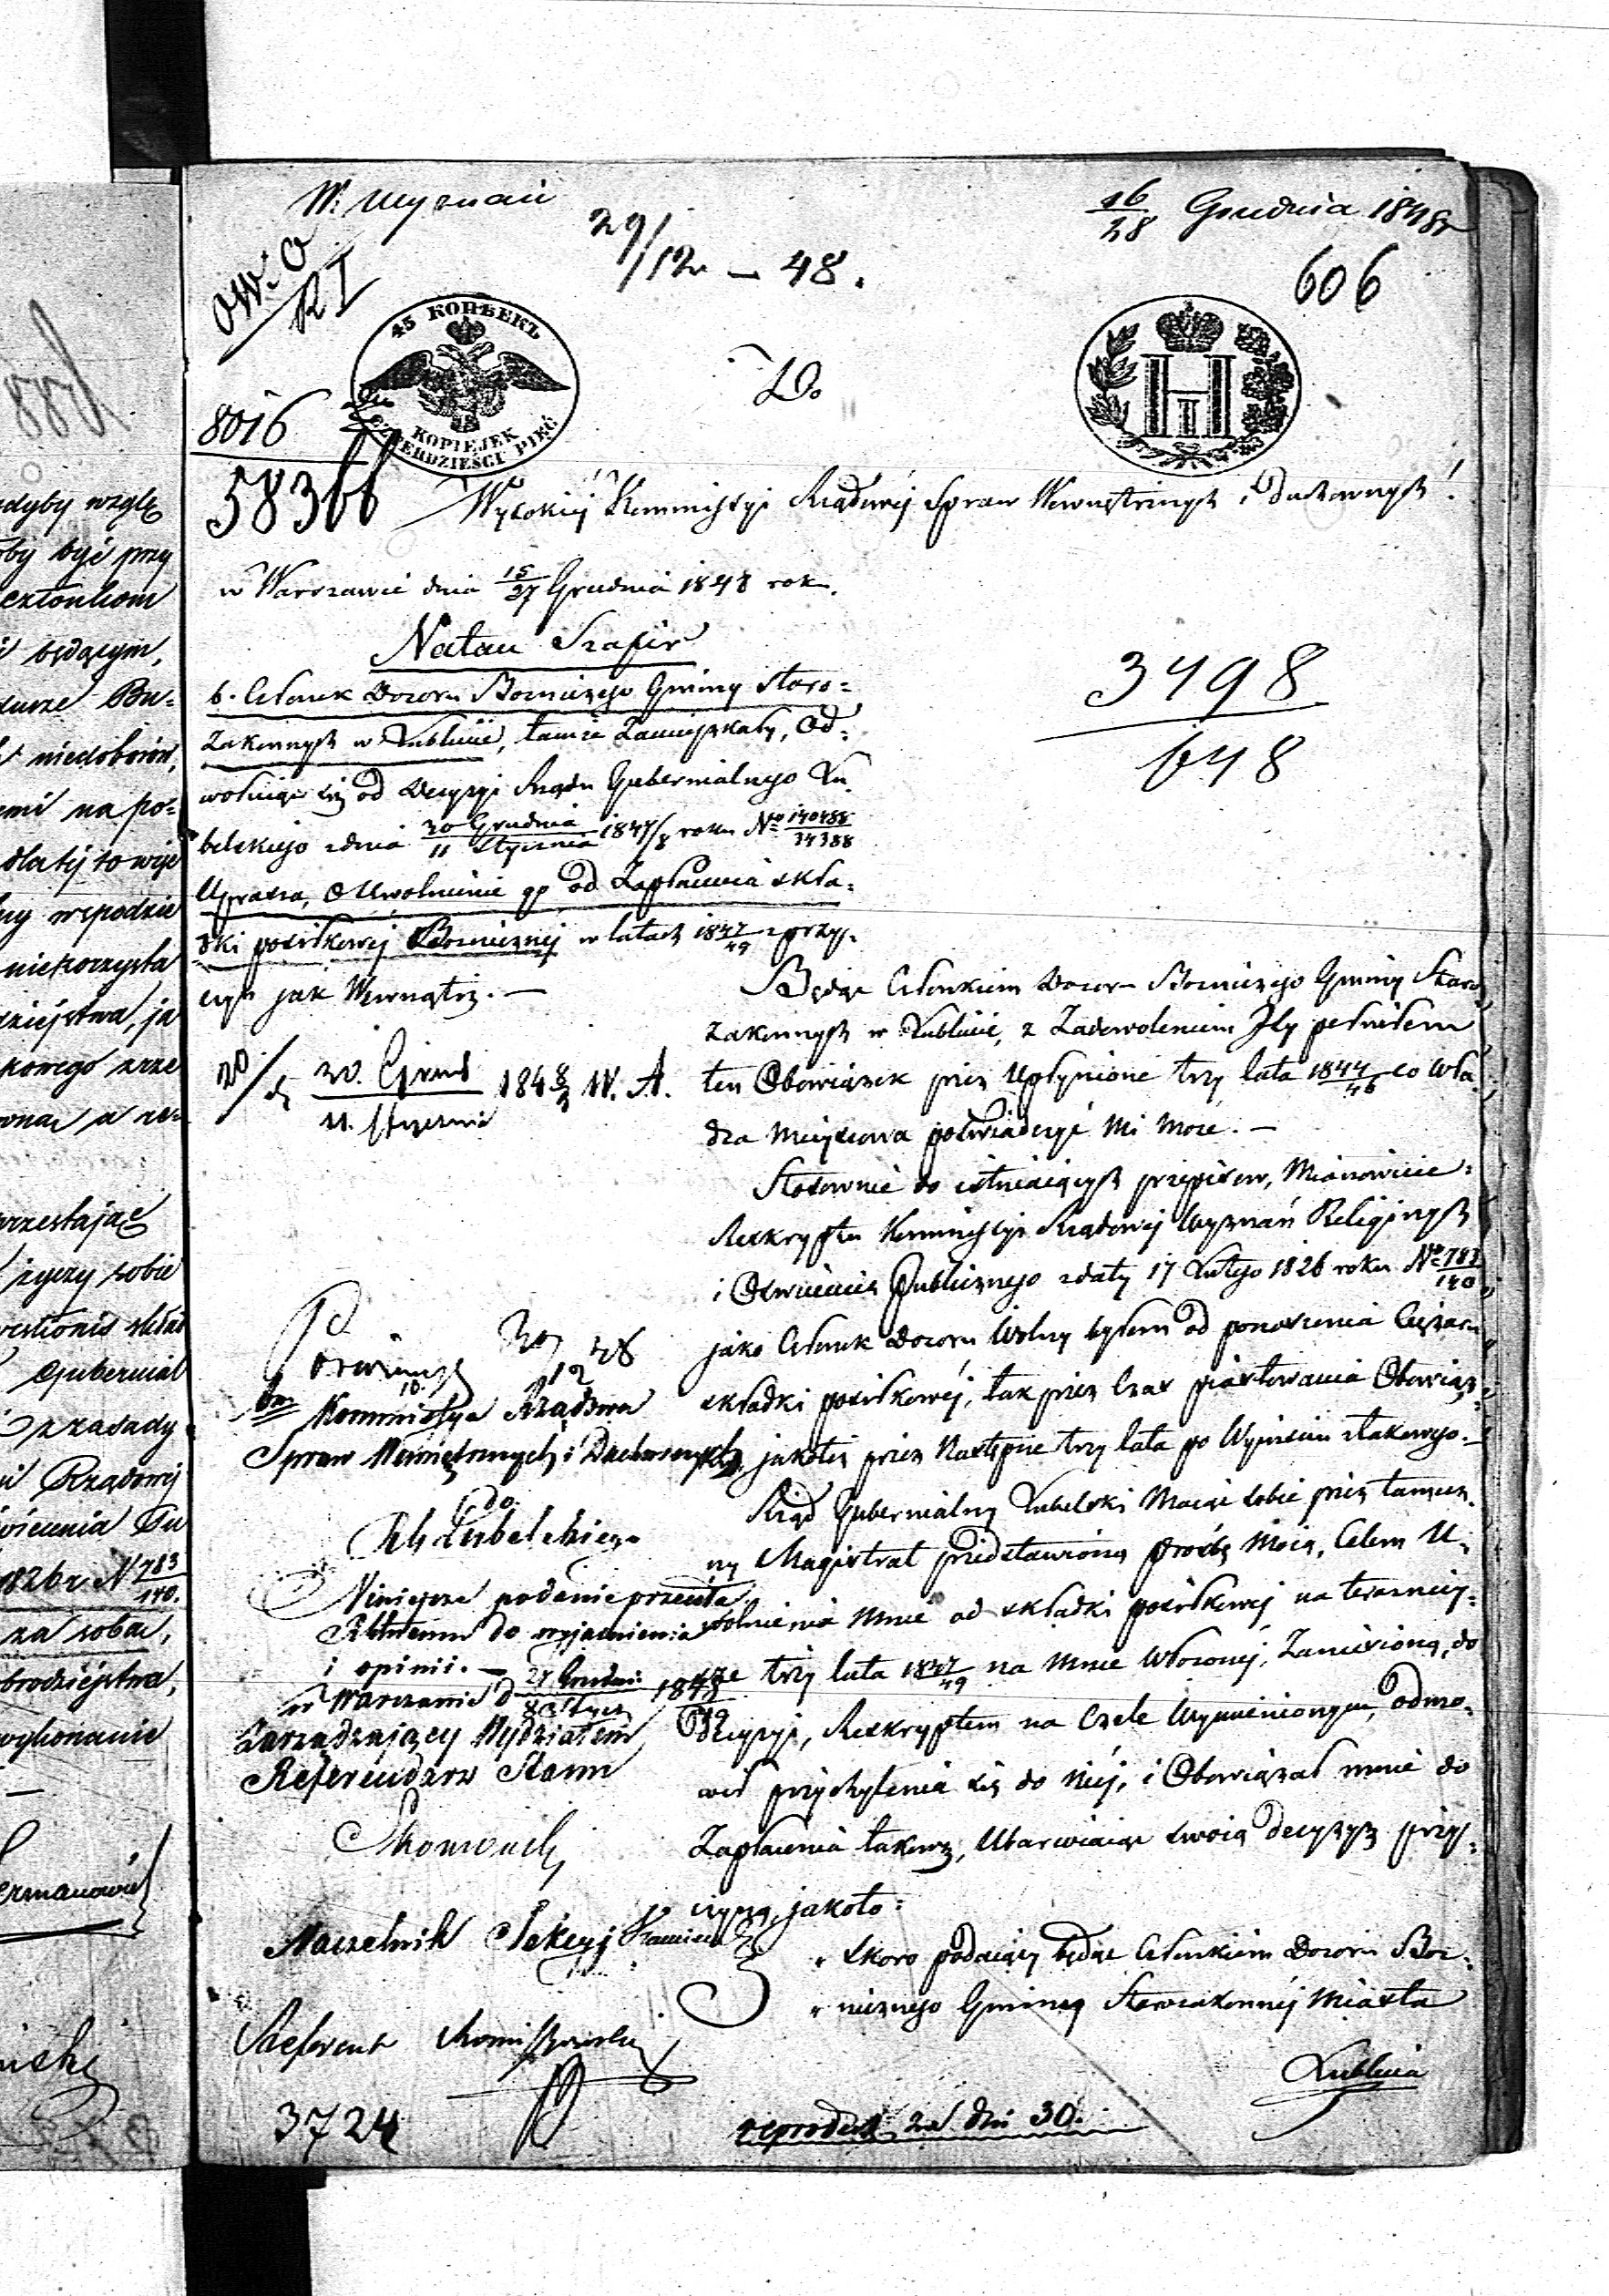 W. Wyznań
16/28 Grudnia 1848r
29/12 – 48.
606
45 КОПѢЕКЪ
KOPIEJEK
CZTERDZIEŚCI PIĘĆ
Н I
Do
8016
58366
Wysokiéj Kommissyi Rządowéj Spraw Wewnętrznych i Duchownych!
w Warszawie dnia 15/27 Grudnia 1848 roku.
Natan Szafir
b. Członek Dozoru Bożniczego Gminy Staro=
zakonnych w Lublinie, tamże Zamieszkały, Od=
wołując się od Decyzyi Rządu Gubernialnego Lu=
belskiego z dnia 30 Grudnia/11 Stycznia 1847/8 roku No 140488/34388
Uprasza, o Uwolnienie go od Zapłacenia skła=
dki posiłkowéj Bożnicznéj w latach 1847/49 z przy=
czyn jak Wewnątrz. —
3498
648
20/ 30. Grud/11. Stycznia 1848/9 W. A.
Będąc Członkiem Dozoru Bożniczego Gminy Staro
zakonnych w Lublinie, z Zadowoleniem Jéy pełniłem
ten Obowiązek przez Upłynione trzy lata 1844/46 co Wła=
dza Miejscowa poświadczyć Mi może. —
Stosownie do istniejących przepisów, Mianowicie=
Reskryptu Kommissyi Rządowéj Wyznań Religijnych
i Oświecenia Publicznego z daty 17 Lutego 1826 roku No 783/140
jako Członek Dozoru Wolny byłem od ponoszenia Ciężaru
składki posiłkowéj, tak przez Czas piastowania Obowiąz=
ku, jakoteż przez Następne trzy lata po Wyjściu z takowego. —
Rząd Gubernialny Lubelski Mając sobie przez tamecz=
ny Magistrat przedstawioną prośbę Moją, Celem U=
wolnienia Mnie od składki posiłkowéj na teraźniey=
sze trzy lata 1847/49 na Mnie Włożonéj, Zaniesioną, do
Decyzyi, Reskryptem na Czele Wymienionym, odmó=
wił przychylenia się do Niéj, i Obowiązał mnie do
Zapłacenia takowéj, Ubarwiając swoją decyzyą przy=
czyną, jakoto:
„ skoro podający będąc Członkiem Dozoru Boż=
„ nicznego Gminy Starozakonnéj Miasta
Lublina
30/12 48
Kommissya Rządowa
Spraw Wewnętrznych i Duchownych
do
Rb Lubelskiego
Niniejsze podanie przesyła
Rbłnemu do wyjaśnienia
i opinii. —
w Warszawie d 27 Grudnia/8 Stycz 1848/9
Zarządzający Wydziałem
Referendarz Stanu
Naczelnik Sekcyi
Referent
3724
reproduk 2d dni 30.
względ
by być przy
członkom
będącym,
niedoborów,
na po=
dla tej to więc
niekorzysta
dziejstwa, ja
przestając
życzy sobie
Gubernial
z zasady
Rządowéj
1826 r. N 783/140.
za sobą,
brodziejstwa,
wykonanie